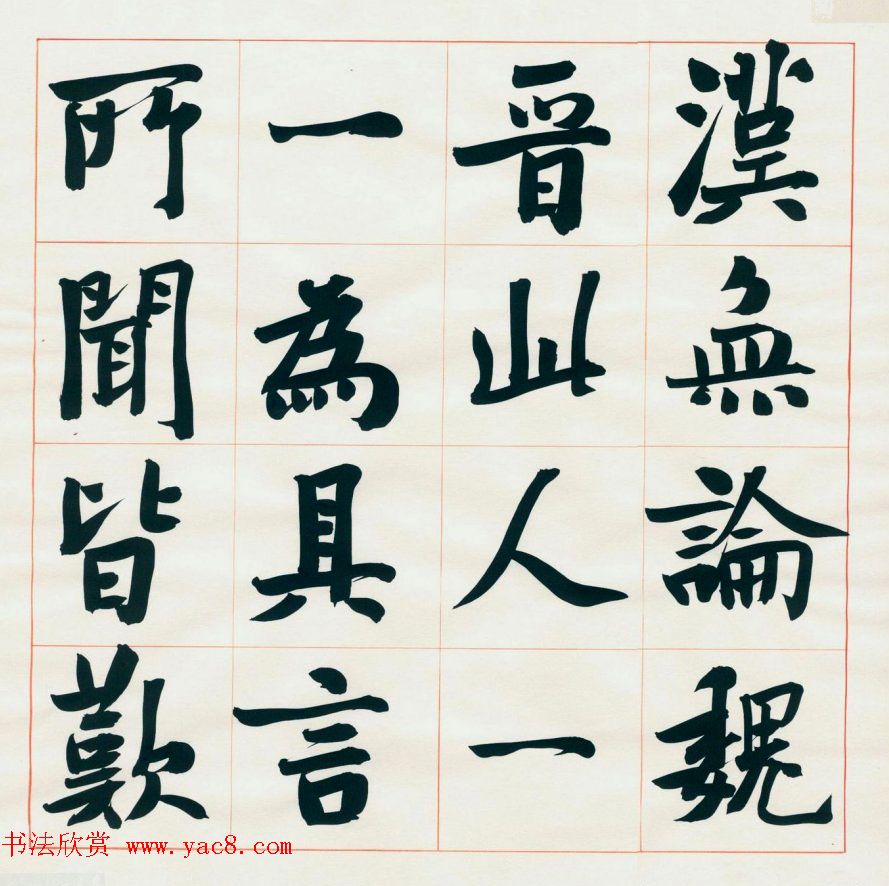 漢無論魏
晉此人一
一為具言
所聞皆歎
书法欣赏 www.yac8.com